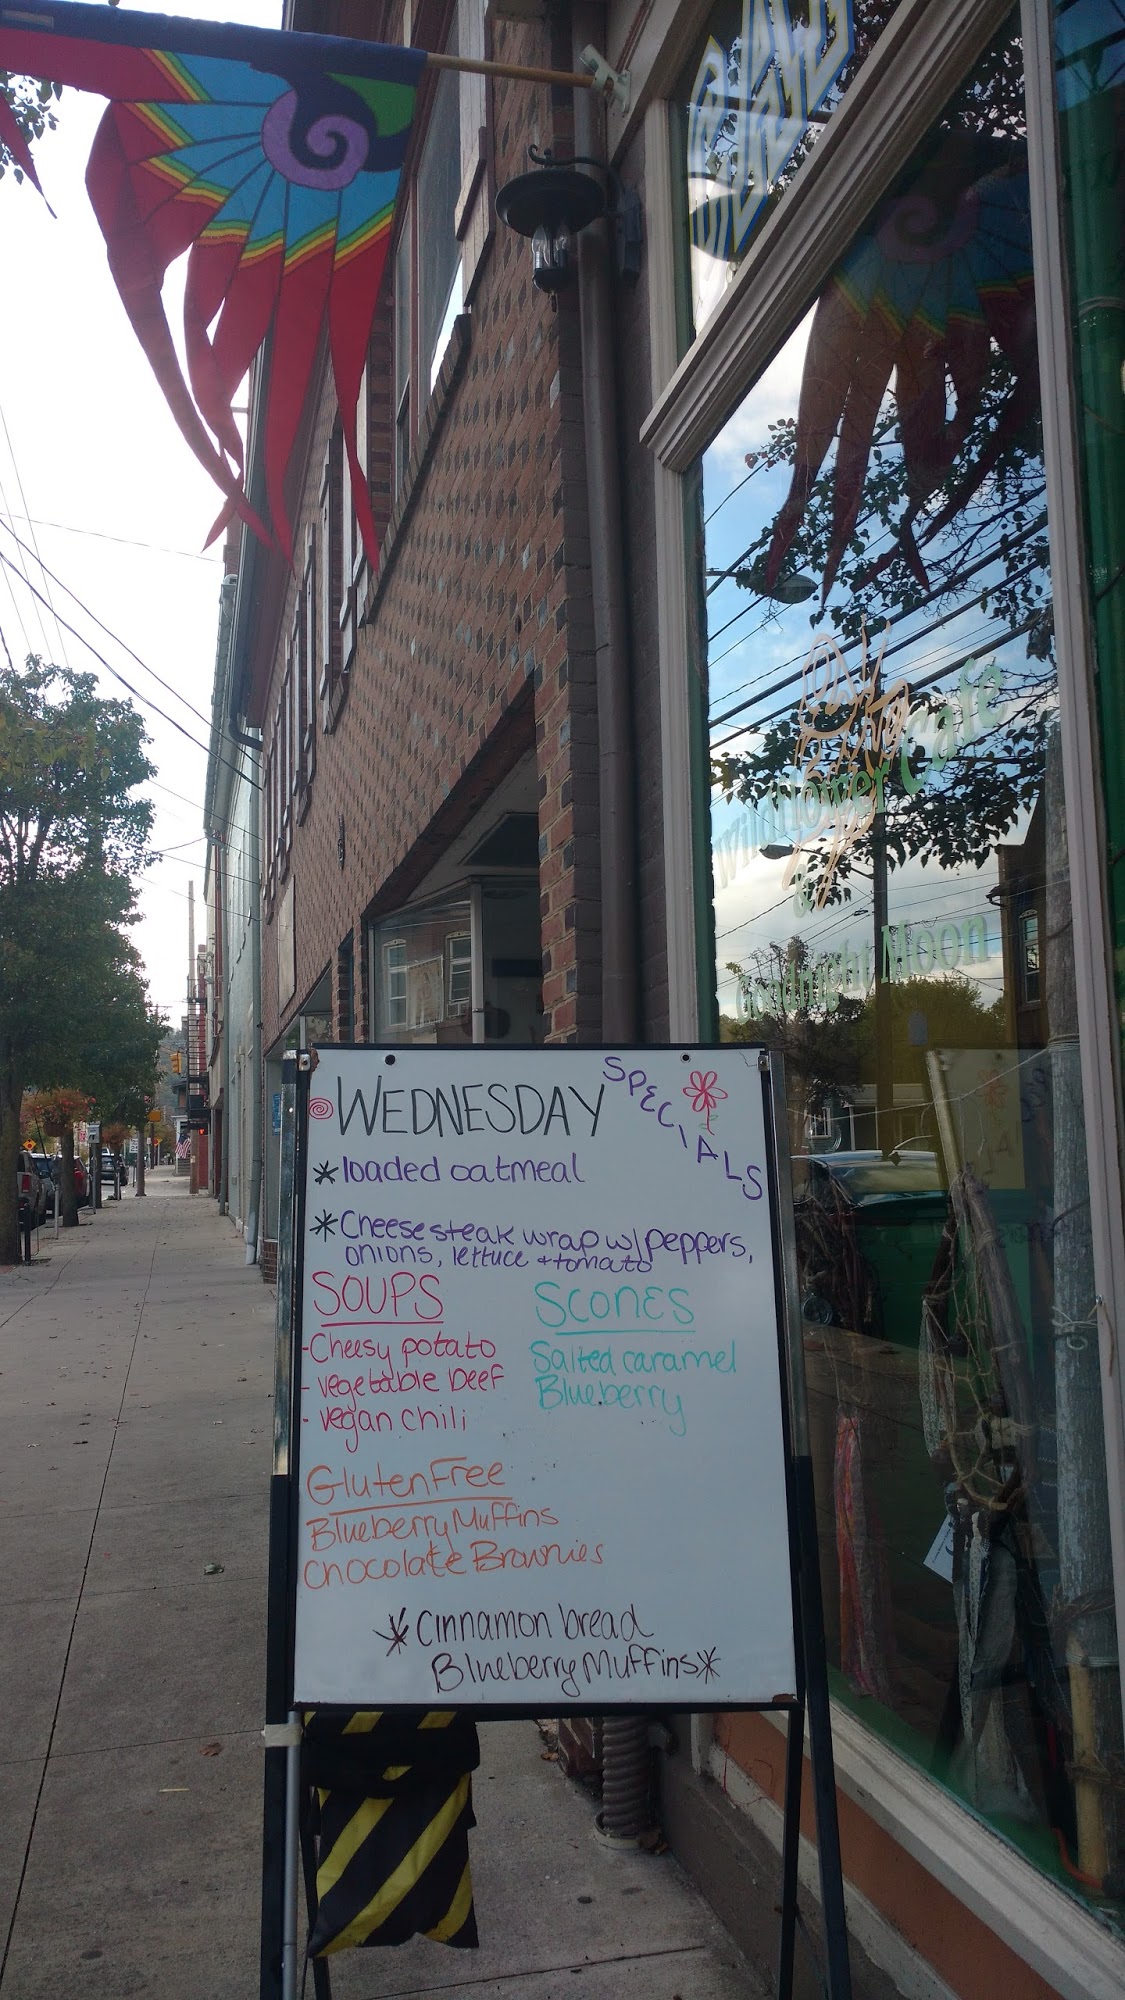 Wildflower Café
&
Goodnight Moon
WEDNESDAY
SPECIALS
* loaded oatmeal
* Cheesesteak wrap w/ peppers,
onions, lettuce + tomato
SOUPS
- Cheesy potato
- vegetable beef
- vegan chili
SCONES
Salted caramel
Blueberry
Gluten Free
Blueberry Muffins
Chocolate Brownies
* Cinnamon bread
Blueberry Muffins *